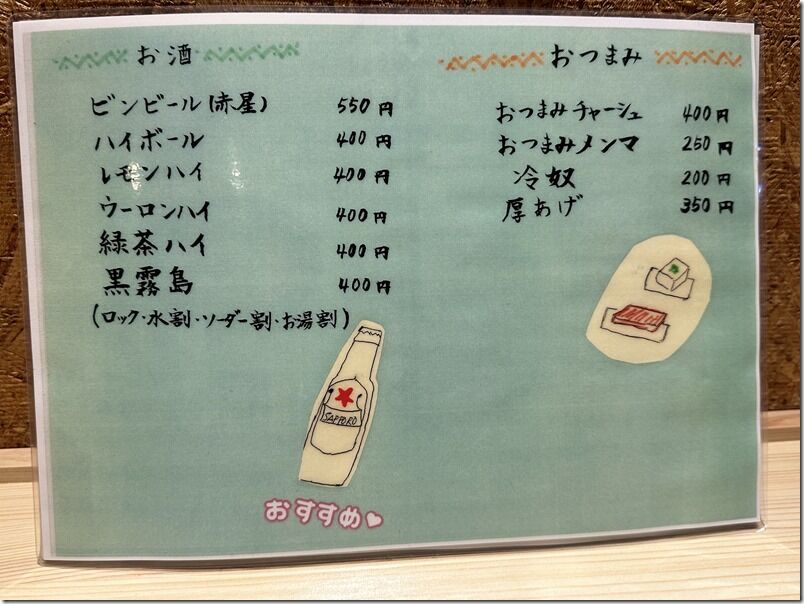 お酒
ビンビール(赤星) 550円
ハイボール 400円
レモンハイ 400円
ウーロンハイ 400円
緑茶ハイ 400円
黒霧島 400円
(ロック・水割・ソーダー割・お湯割)
SAPPORO
おすすめ♥
おつまみ
おつまみチャーシュ 400円
おつまみメンマ 250円
冷奴 200円
厚あげ 350円